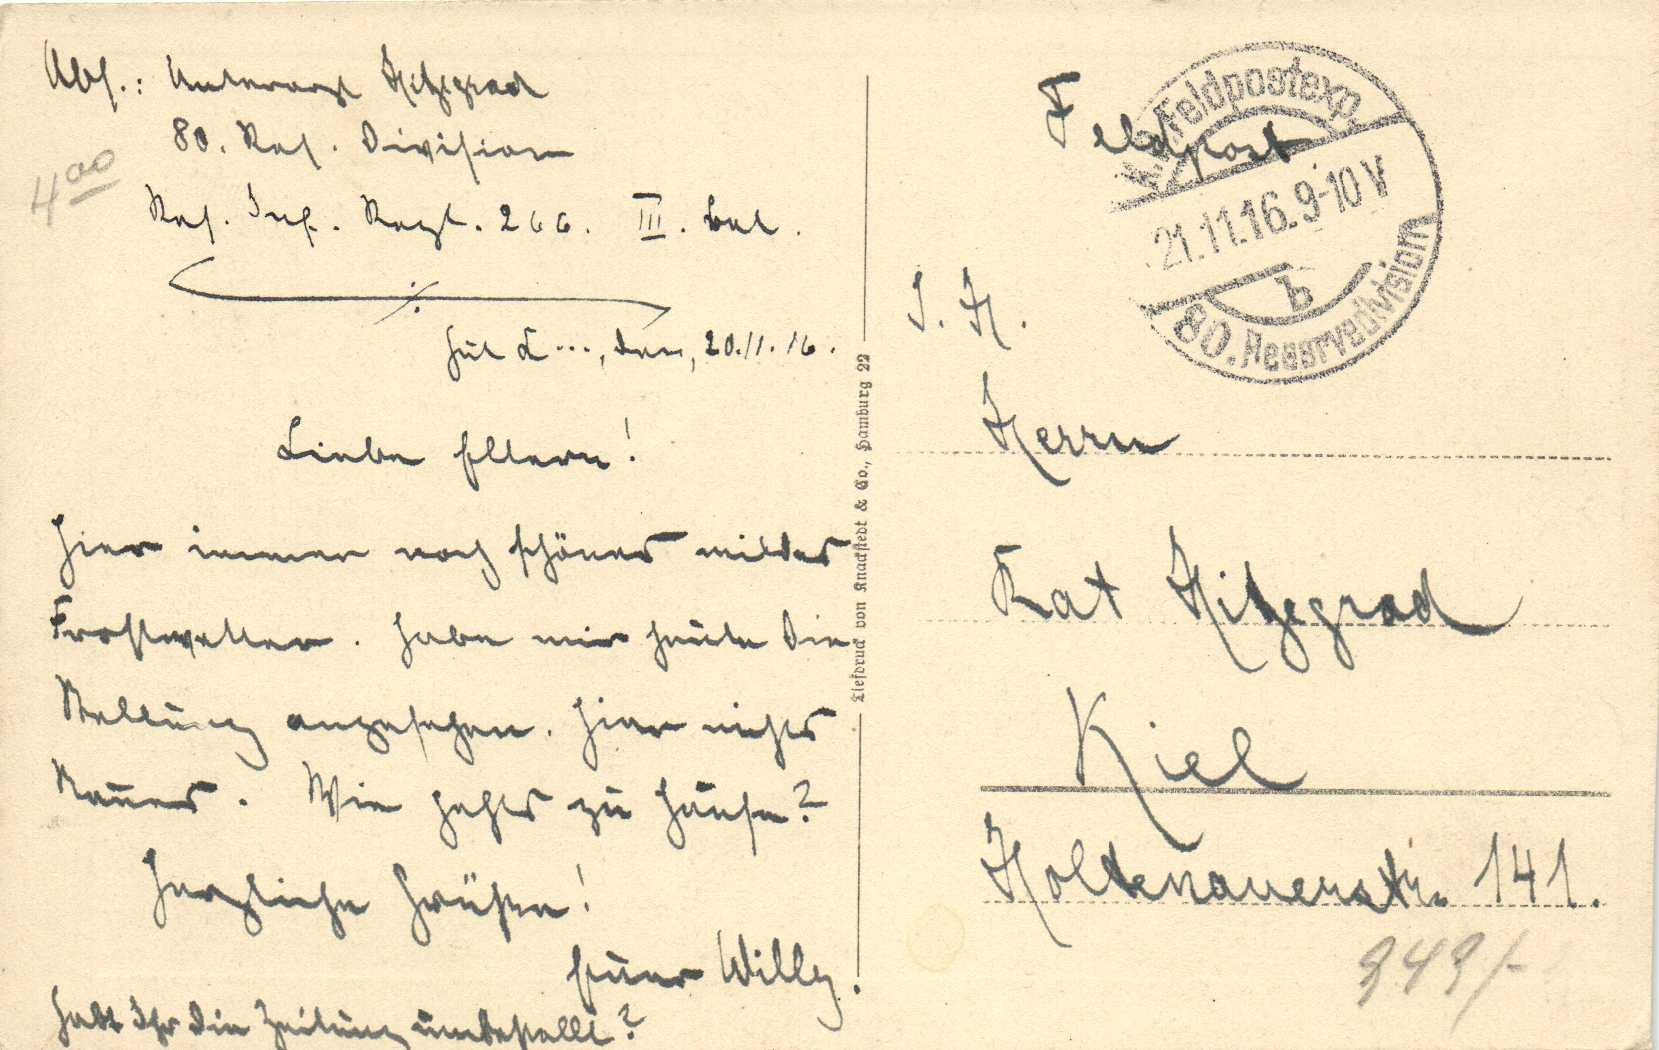 Abs.: Unterarzt Hitzegrad
80. Res. Division
4 00
Res. Inf. Regt. 266. III. Bat.
Gut L..., den, 20.11.16.
Liebe Eltern!
Hier immer noch schönes mildes
Frostwetter. Habe mir heute die
Stellung angesehen. Hier nichts
Neues. Wie gehts zu Hause?
Herzliche Grüße!
Euer Willy.
Habt Ihr die Zeitung umbestellt?
Tiefdruck von Knackstedt & Co., Hamburg 22
Feldpost
K. D. Feldpostexp.
21.11.16. 9-10 V
b
80. Reservedivision
S. H.
Herrn
Rat Hitzegrad
Kiel
Holtenauerstr. 141.
949/-